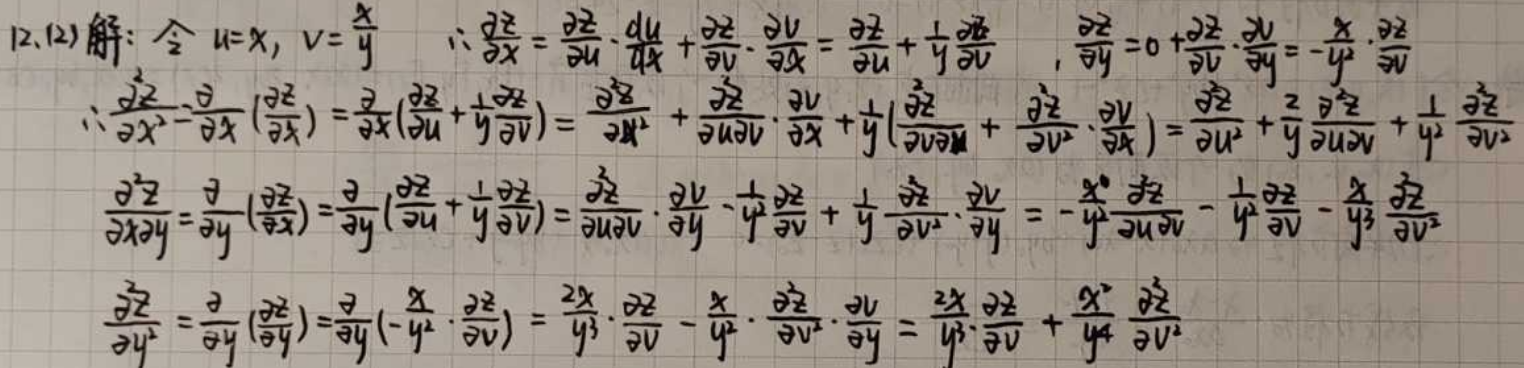 12.(2) 解: 令 u=x, v=x/y ∴ ∂z/∂x = ∂z/∂u · du/dx + ∂z/∂v · ∂v/∂x = ∂z/∂u + 1/y ∂z/∂v , ∂z/∂y = 0 + ∂z/∂v · ∂v/∂y = -x/y² · ∂z/∂v
∴ ∂²z/∂x² = ∂/∂x (∂z/∂x) = ∂/∂x (∂z/∂u + 1/y ∂z/∂v) = ∂²z/∂u² + ∂²z/∂u∂v · ∂v/∂x + 1/y (∂²z/∂v∂u + ∂²z/∂v² · ∂v/∂x) = ∂²z/∂u² + 2/y ∂²z/∂u∂v + 1/y² ∂²z/∂v²
∂²z/∂x∂y = ∂/∂y (∂z/∂x) = ∂/∂y (∂z/∂u + 1/y ∂z/∂v) = ∂²z/∂u∂v · ∂v/∂y - 1/y² ∂z/∂v + 1/y ∂²z/∂v² · ∂v/∂y = -x/y² ∂²z/∂u∂v - 1/y² ∂z/∂v - x/y³ ∂²z/∂v²
∂²z/∂y² = ∂/∂y (∂z/∂y) = ∂/∂y (-x/y² · ∂z/∂v) = 2x/y³ · ∂z/∂v - x/y² · ∂²z/∂v² · ∂v/∂y = 2x/y³ · ∂z/∂v + x²/y⁴ ∂²z/∂v²